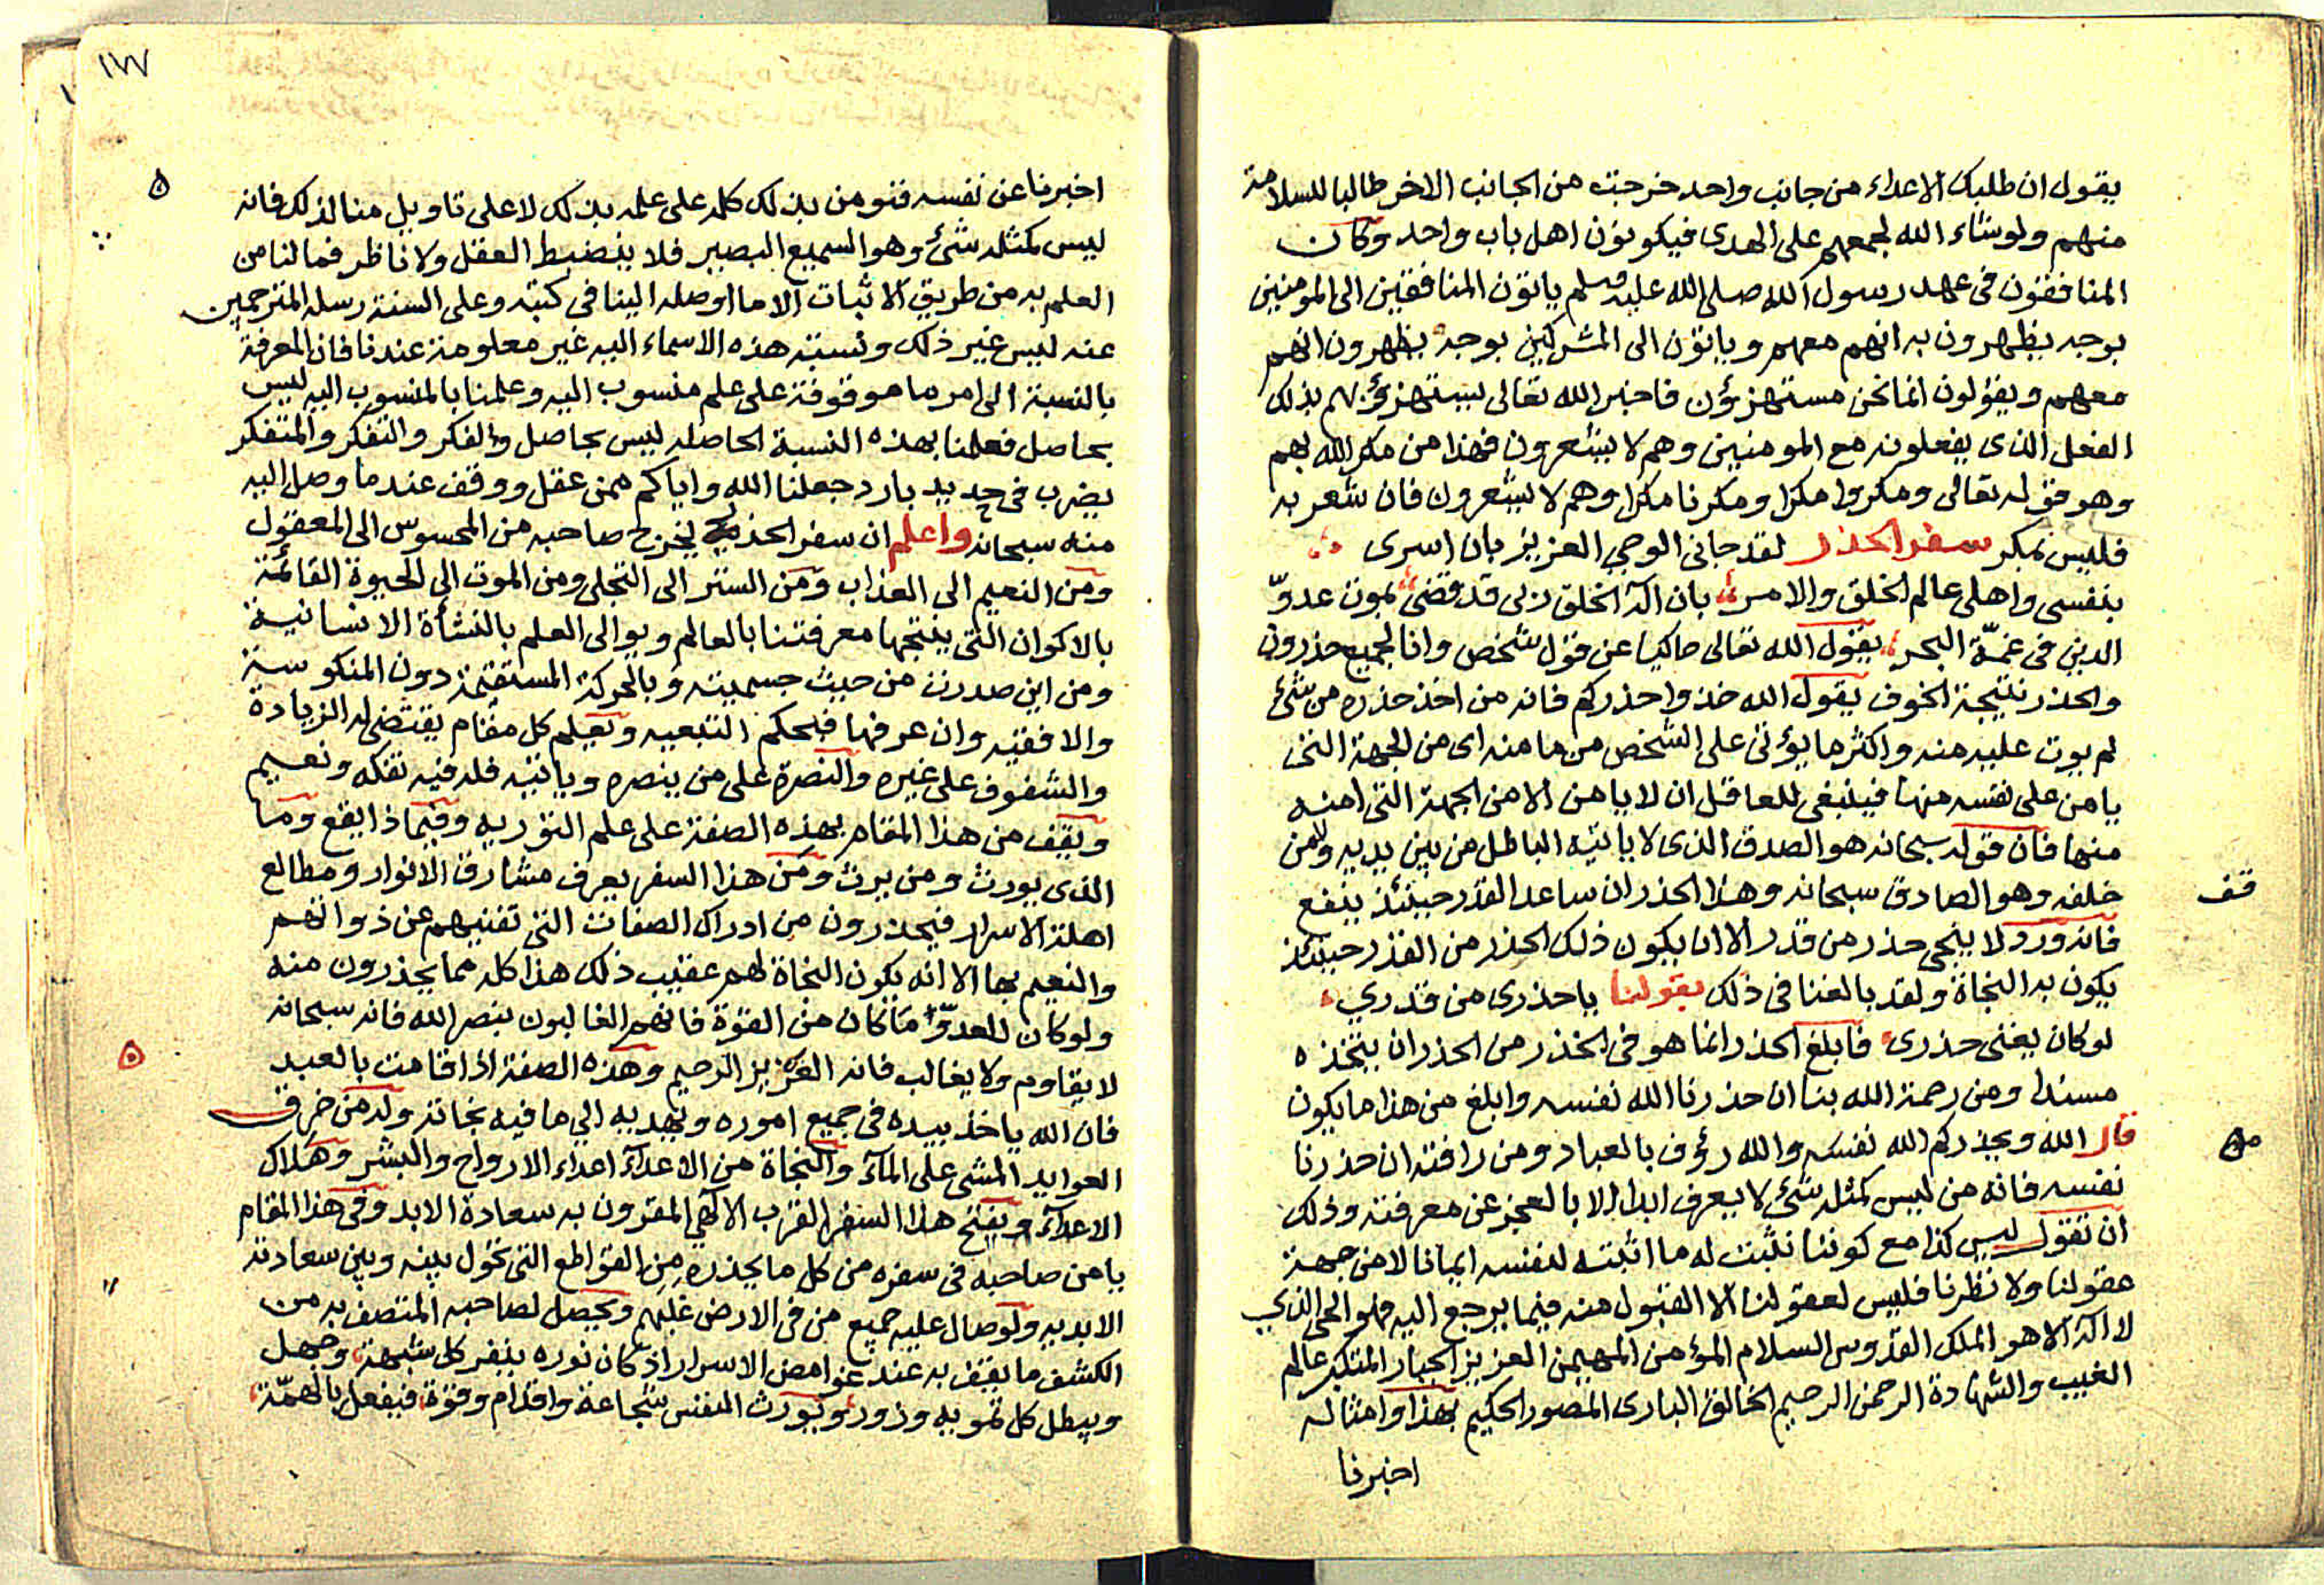 يقول ان طلبك الاعداء من جانب واحد خرجت من الجانب الاخر طالبا للسلامة
منهم ولو شاء الله لجمعهم على الهدى فيكونون اهل باب واحد وكان
المنافقون فى عهد رسول الله صلى الله عليه وسلم ياتون المنافقين الى المومنين
بوجه يظهرون به انهم معهم وياتون الى المشركين بوجه يظهرون انهم
معهم ويقولون انما نحن مستهزؤن فاخبر الله تعالى يستهزؤ بهم بذلك
الفعل الذى يفعلونه مع المومنين وهم لا يشعرون فهذا من مكر الله بهم
وهو قوله تعالى ومكروا مكرا ومكرنا مكرا وهم لا يشعرون فان شعر به
فليس بمكر سفر الحذر لقد جانى الوحي العزيز بان اسرى
بنفسى واهلى عالم الخلق والامر بان اله الخلق ربى قد قضى بموت عدوّ
الدين فى غمّة البحر يقول الله تعالى حاكيا عن قول شخص وانا لجميع حذرون
والحذر نتيجة الخوف يقول الله خذوا حذركم فانه من اخذ حذره من شئ
لم يوت عليه منه واكثر ما يؤتى على الشخص من مامنه اى من الجهة التى
يامن على نفسه منها فينبغى للعاقل ان لا يامن الا من الجهة التى امنه
منها فان قوله سبحانه هو الصدق الذى لا ياتيه الباطل من بين يديه ولا من
قف
خلفه وهو الصادق سبحانه وهذا الحذر ان ساعد القدر حينئذ ينفع
فانه ورد لا ينجى حذر من قدر الا ان يكون ذلك الحذر من القدر حينئذ
يكون به النجاة ولقد بالغنا فى ذلك بقولنا يا حذرى من قدري
لو كان يغنى حذرى فابلغ الحذر انما هو فى الحذر من الحذر ان يتخذه
مسندا ومن رحمة الله بنا ان حذرنا الله نفسه وابلغ من هذا ما يكون
قال الله ويحذركم الله نفسه والله رؤف بالعباد ومن رافته ان حذرنا
نفسه فانه من ليس كمثله شئ لا يعرف ابدا الا بالعجز عن معرفته وذلك
ان تقول ليس كذا مع كوننا نثبت له ما اثبته لنفسه ايمانا لا من جهة
عقولنا ولا نظرنا فليس لعقولنا الا القبول منه فيما يرجع اليه فهو الحى الذي
لا اله الا هو الملك القدوس السلام المؤمن المهيمن العزيز الجبار المتكبر عالم
الغيب والشهادة الرحمن الرحيم الخالق البارى المصور الحكيم بهذا وامثاله
اخبرنا
١٧٧
اخبرنا عن نفسه فنومن بذلك كله على علمه بذلك لا على تاويل منا لذلك فانه
ليس كمثله شئ وهو السميع البصير فلا ينضبط العقل ولا ناظر فما لنا من
العلم به من طريق الاثبات الا ما اوصله الينا فى كتبه وعلى السنة رسله المترجمين
عنه ليس غير ذلك ونسبة هذه الاسماء اليه غير معلومة عندنا فان المعرفة
بالنسبة الى امر ما موقوفة على علم منسوب اليه وعلمنا بالمنسوب اليه ليس
بحاصل فعلمنا بهذه النسبة الحاصله ليس بحاصل والفكر والتفكر والمتفكر
يضرب فى حديد بارد جعلنا الله واياكم ممن عقل ووقف عند ما وصل اليه
منه سبحانه واعلم ان سفر الحذر يخرج صاحبه من المحسوس الى المعقول
ومن النعيم الى العذاب ومن الستر الى التجلى ومن الموت الى الحيوة القائمة
بالاكوان التى ينتجها معرفتنا بالعالم ويوالى العلم بالنشأة الانسانية
ومن اين صدرت من حيث جسميته وبالحركة المستقيمة دون المنكوسة
والافقيه وان عرفها فبحكم التبعيه وتعيلم كل مقام يقتضى له الزيادة
والشفوف على غيره والنصرة على من ينصره وياتيه فله فيه تفكه ونعيم
ويقف من هذا المقام بهذه الصفة على علم التوريه وفيما ذا يقع وما
الذى يورث ومن يرث ومن هذا السفر يعرف مشارق الانوار ومطالع
اهلة الاسرار فيحذرون من ادراك الصفات التى تفنيهم عن ذواتهم
والنعيم بها الا انه تكون النجاة لهم عقيب ذلك هذا كله مما يحذرون منه
ولو كان للعدوّ ما كان من القوة فانهم الغالبون بنصر الله فانه سبحانه
لا يقاوم ولا يغالب فانه العزيز الرحيم وهذه الصفة اذا قامت بالعبد
فان الله ياخذ بيده فى جميع اموره ويهديه الى ما فيه نجاته وله من خرق
العوايد المشى على المآء والنجاة من الاعدآء اعداء الارواح والبشر وهلاك
الاعدآء وينتج هذا السفر القرب الالهي المقرون به سعادة الابد وفى هذا المقام
يامن صاحبه فى سفره من كل ما يحذره من القواطع التى تحول بينه وبين سعادته
الابديه ولو صال عليه جميع من فى الارض غلبهم ويحصل لصاحبه المتصف به من
الكشف ما يقف به عند غوامض الاسرار اذ كان نوره ينفر كل شبهة وجهل
ويبطل كل تمويه وزور ويورث النفس شجاعة واقدام وقوة فيفعل بالهمّة